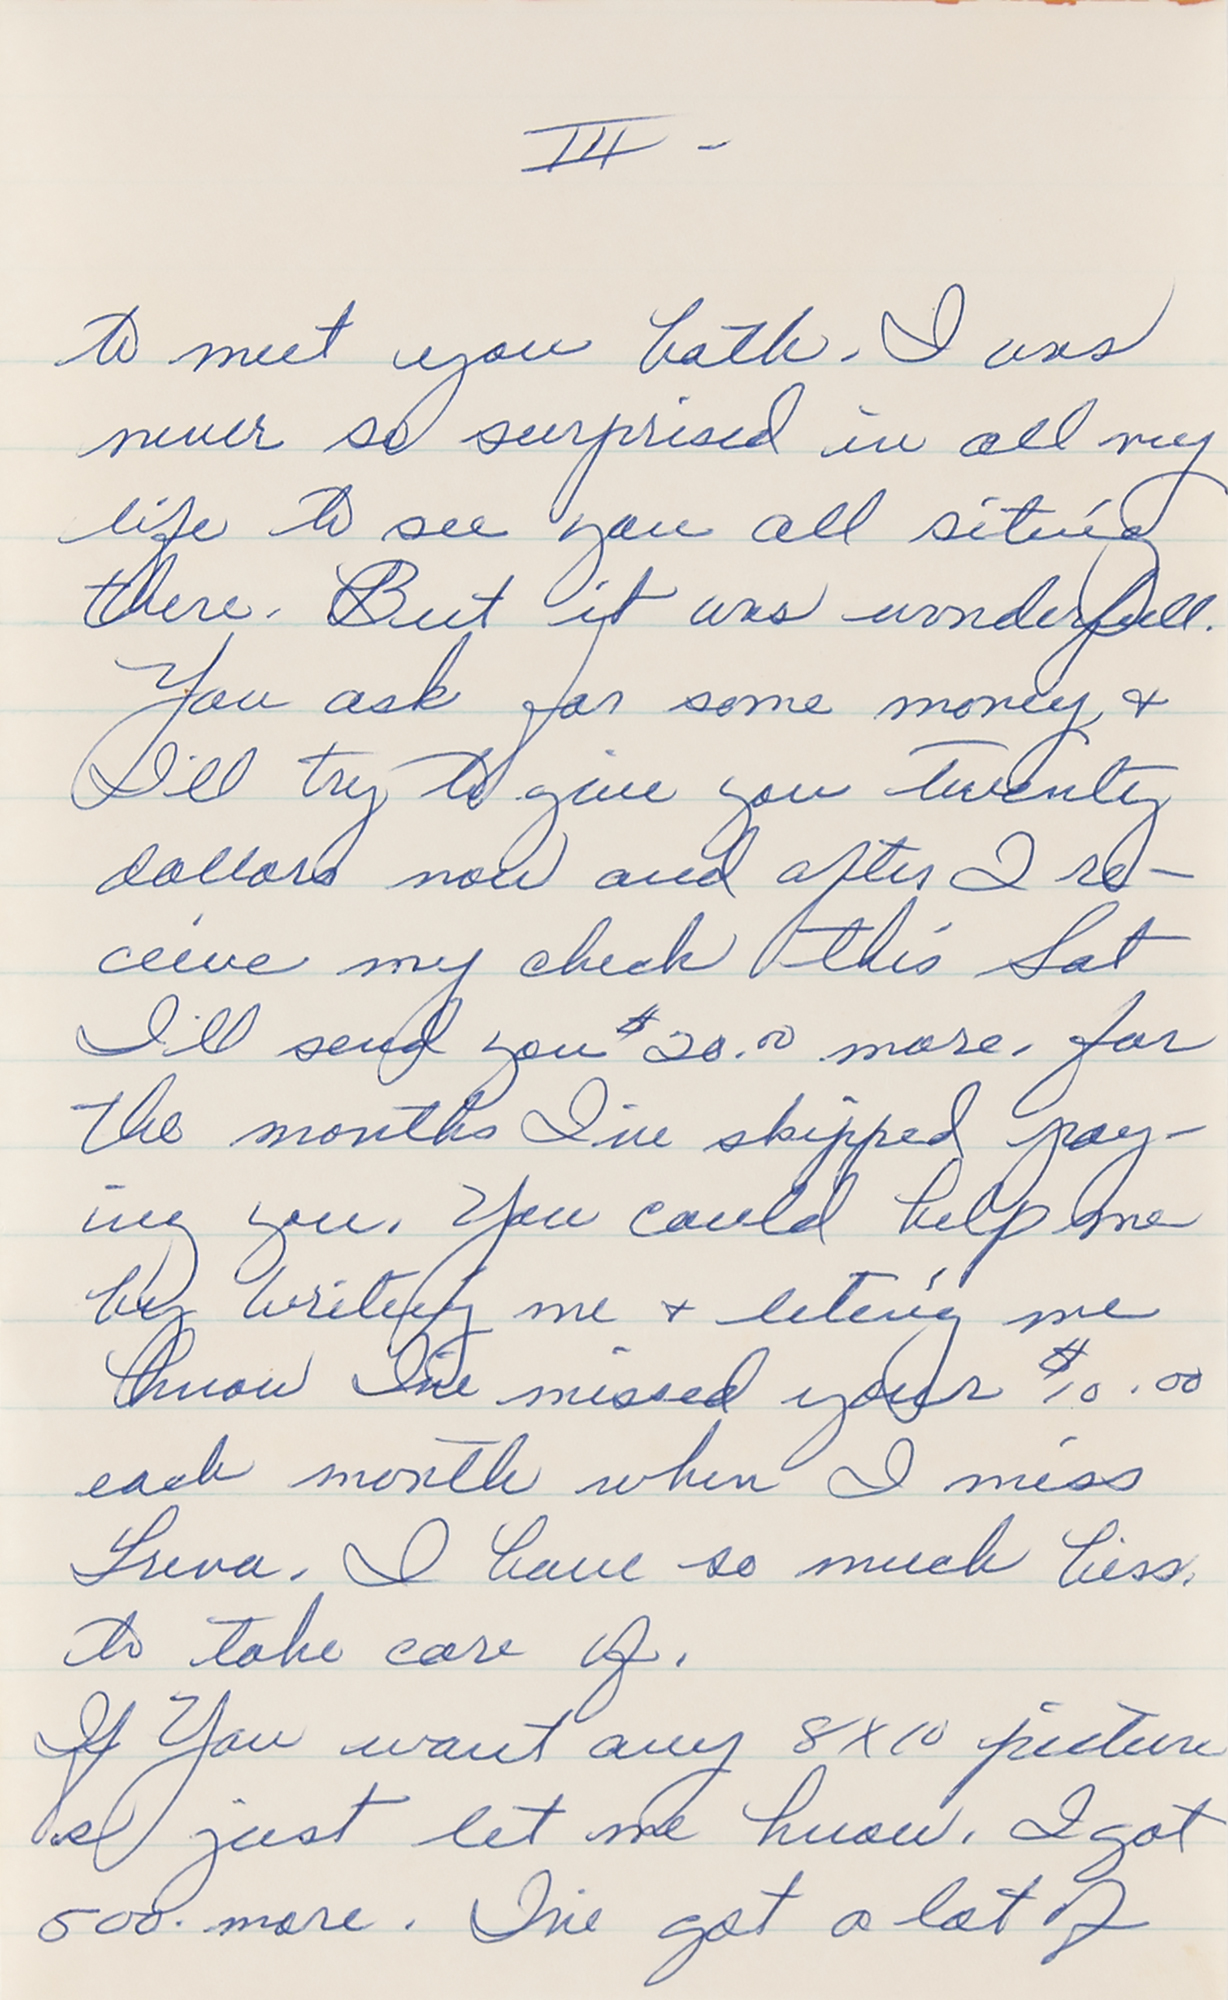 III -
to meet you both. I was
never so surprised in all my
life to see you all siting
there. But it was wonderfull.
You ask for some money, &
I'll try to give you twenty
dollars now and after I re-
ceive my check this Sat
I'll send you $20.00 more. for
the months I've skipped pay-
ing you. You could help me
by writeing me & leting me
know I've missed your $10.00
each month when I miss
Treva. I have so much biss.
to take care of.
If You want any 8x10 picture
s just let me know. I got
500. more. I've got a lot of